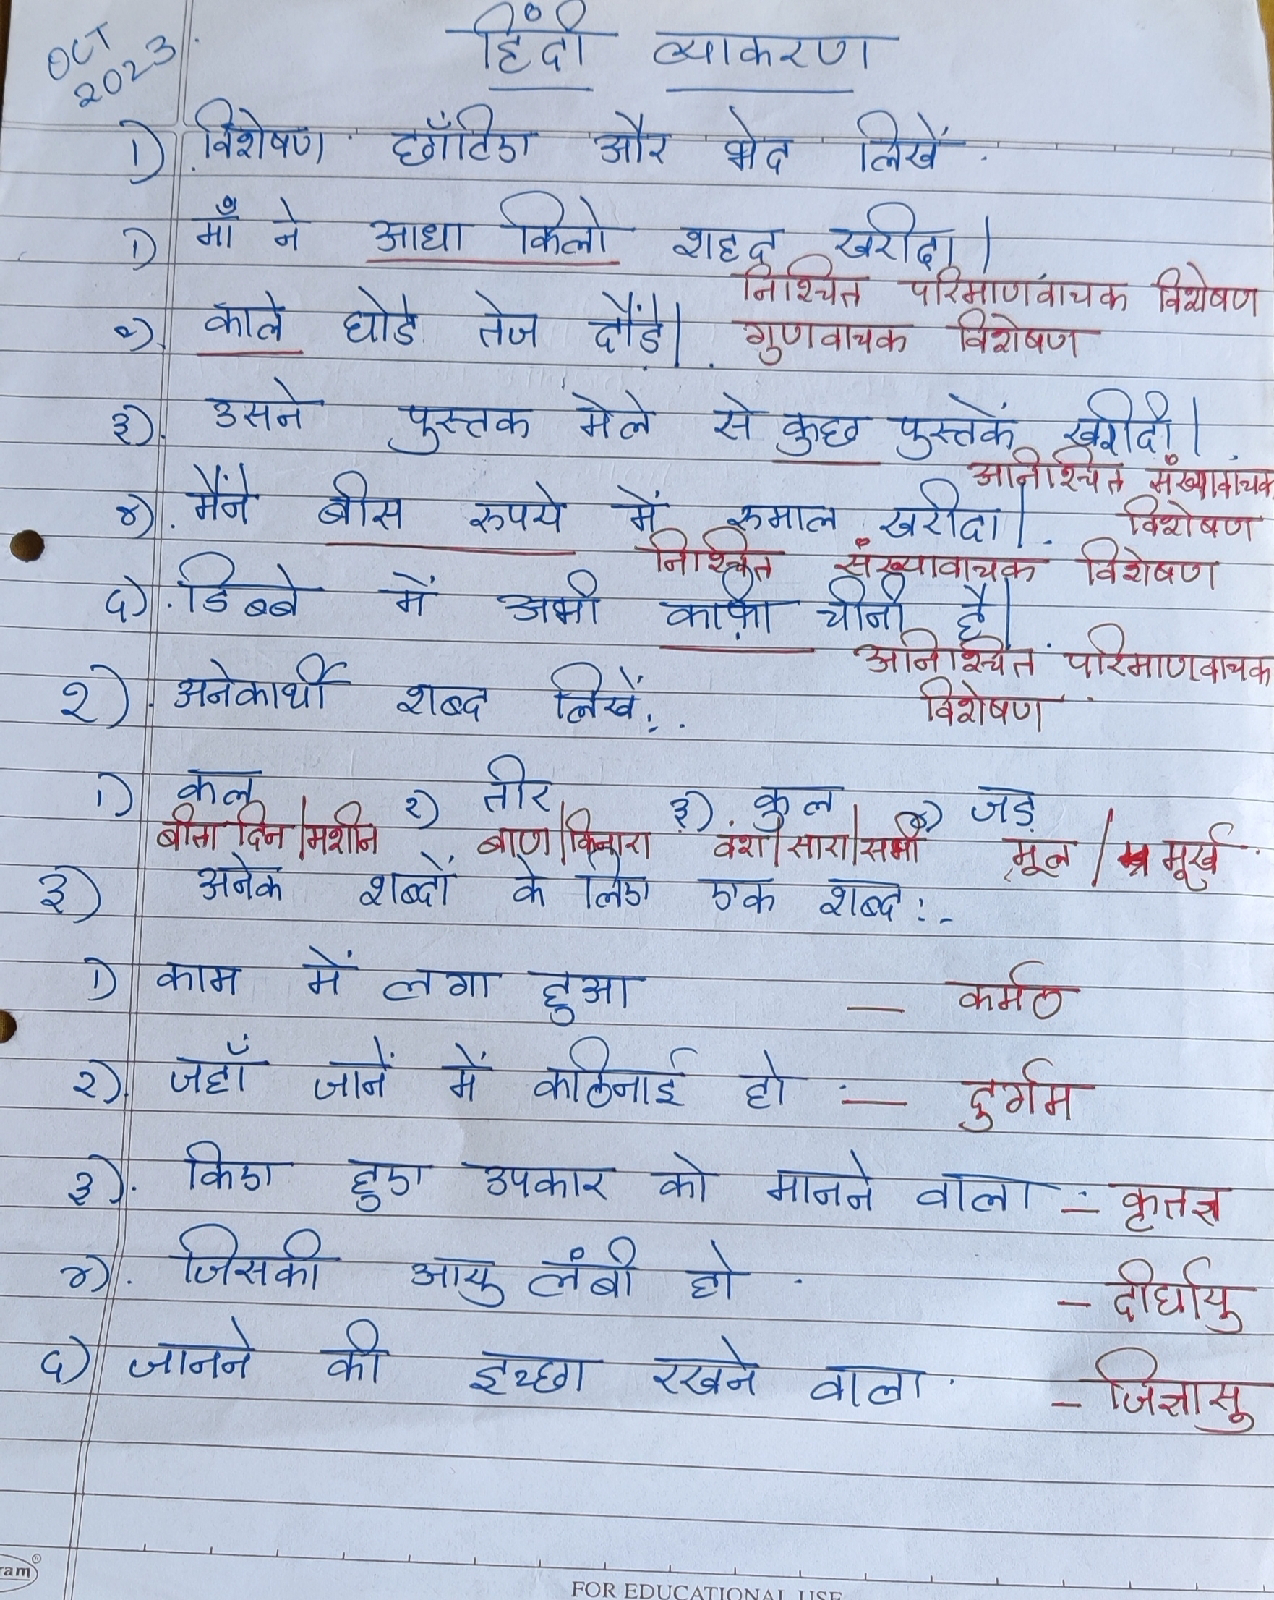 OCT
2023
हिंदी व्याकरण
1) विशेषण छाँटिए और भेद लिखें.
1) माँ ने आधा किलो शहद खरीदा।
निश्चित परिमाणवाचक विशेषण
२) काले घोडे तेज दौंडे। गुणवाचक विशेषण
३) उसने पुस्तक मेले से कुछ पुस्तकें खरीदीं।
अनिश्चित संख्यावाचक
विशेषण
४) मैंने बीस रुपये में रुमाल खरीदा।
निश्चित संख्यावाचक विशेषण
५) डिब्बे में अभी काफ़ी चीनी है।
अनिश्चित परिमाणवाचक
विशेषण
२) अनेकार्थी शब्द लिखें:.
1) कल २) तीर ३) कुल ४) जड़
बीता दिन/मशीन बाण/किनारा वंश/सारा/सभी मूल / मूर्ख
३) अनेक शब्दों के लिए एक शब्द :-
1) काम में लगा हुआ — कर्मठ
२) जहाँ जानें में कठिनाई हो :— दुर्गम
३) किए हुए उपकार को मानने वाला :— कृतज्ञ
४) जिसकी आयु लंबी हो - दीर्घायु
५) जानने की इच्छा रखने वाला - जिज्ञासु
ram®
FOR EDUCATIONAL USE